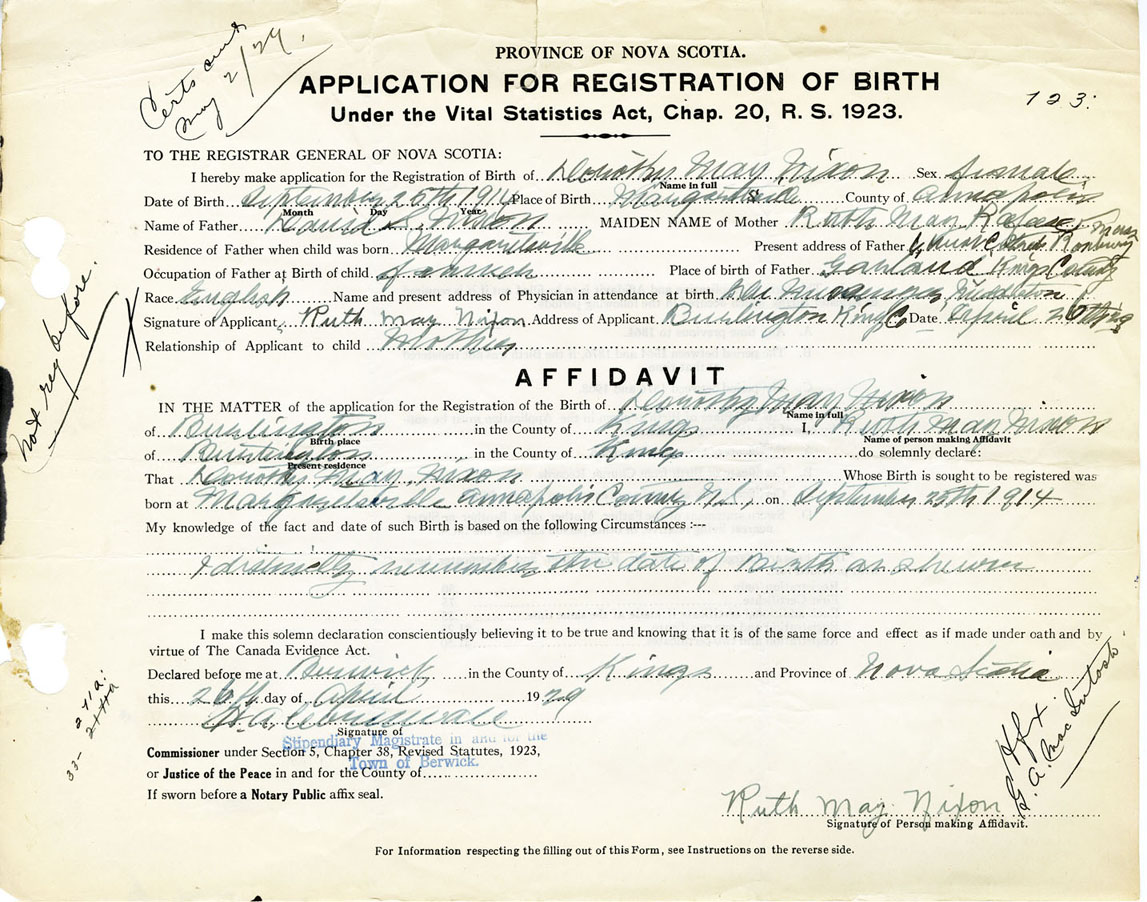 Certs out
May 2/29.
PROVINCE OF NOVA SCOTIA.
APPLICATION FOR REGISTRATION OF BIRTH
Under the Vital Statistics Act, Chap. 20, R. S. 1923.
123.
TO THE REGISTRAR GENERAL OF NOVA SCOTIA:
I hereby make application for the Registration of Birth of Dorothy May Nixon Sex female
Name in full
Date of Birth September 25th 1914 Place of Birth Margaretsville County of Annapolis
Month Day Year
Name of Father David S. Nixon MAIDEN NAME of Mother Ruth May
Residence of Father when child was born Margaretville Present address of Father
Occupation of Father at Birth of child. Place of birth of Father Garland Kings County
Race English Name and present address of Physician in attendance at birth Middleton
Signature of Applicant Ruth May Nixon Address of Applicant Burlington King Co Date April
Relationship of Applicant to child Mother
Not reg before.
AFFIDAVIT
IN THE MATTER of the application for the Registration of the Birth of Dorothy May Nixon
Name in full
of Burlington in the County of Kings I, Ruth May Nixon
Birth place Name of person making Affidavit
of Burlington, in the County of Kings do solemnly declare:
Present residence
That Dorothy May Nixon Whose Birth is sought to be registered was
born at Margaretsville Annapolis County N.S., on September 25th 1914
My knowledge of the fact and date of such Birth is based on the following Circumstances :---
I distinctly remember the date of Birth as shewn
I make this solemn declaration conscientiously believing it to be true and knowing that it is of the same force and effect as if made under oath and by
virtue of The Canada Evidence Act.
Declared before me at Berwick in the County of Kings and Province of Nova Scotia
this 26th day of April 1929
Signature of
Stipendiary Magistrate in and for the
Commissioner under Section 5, Chapter 38, Revised Statutes, 1923,
Town of Berwick.
or Justice of the Peace in and for the County of
If sworn before a Notary Public affix seal.
Ruth May Nixon
Signature of Person making Affidavit.
G. A. MacIntosh
Hfx
For Information respecting the filling out of this Form, see Instructions on the reverse side.